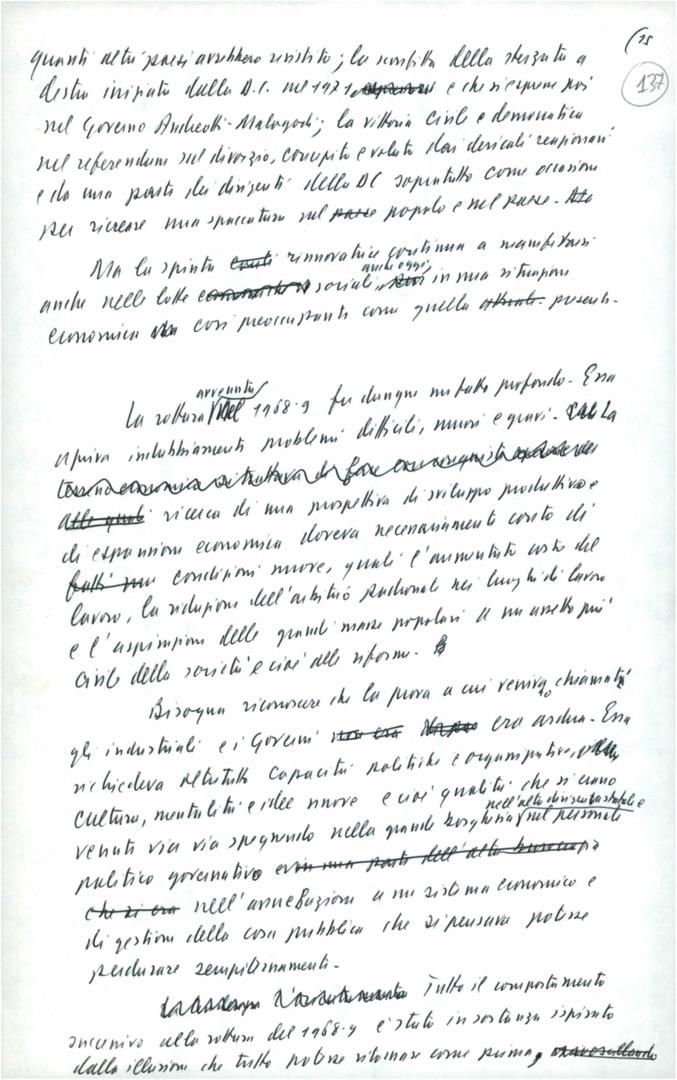 15
137
quanti altri paesi avrebbero resistito; la sconfitta della sterzata a
destra iniziata dalla D.C. nel 1971, e che si espresse poi
nel Governo Andreotti-Malagodi; la vittoria civile e democratica
nel referendum sul divorzio, concepito e voluto dai clericali reazionari
e da una parte dei dirigenti della DC soprattutto come occasione
per ricreare una spaccatura nel paese popolo e nel paese.
Ma la spinta rinnovatrice continua a manifestarsi
anche oggi,
anche nelle lotte sociali, in una situazione
economica così preoccupante come quella attuale presente.
avvenuta
La rottura nel 1968-9 fu dunque un fatto profondo. Essa
apriva indubbiamente problemi difficili, nuovi e gravi. La
alle quali ricerca di una prospettiva di sviluppo produttivo e
di espansione economica doveva necessariamente conto di
fatti condizioni nuove, quali l'aumentato costo del
lavoro, la riduzione dell'arbitrio padronale nei luoghi di lavoro
e l'aspirazione delle grandi masse popolari a un assetto più
civile della società e cioè alle riforme.
Bisogna riconoscere che la prova a cui venivano chiamati
gli industriali e i Governi non era era ardua. Essa
richiedeva oltretutto capacità politiche e organizzative,
cultura, mentalità e idee nuove e cioè qualità che si erano
nell'alta dirigenza statale e
venute via via spegnendo nella grande borghesia nel personale
politico governativo in una parte dell'alta burocrazia
che si era nell'assuefazione a un sistema economico e
di gestione della cosa pubblica che si pensava potesse
perdurare sempiternamente.
Tutto il comportamento
successivo alla rottura del 1968-9 è stato in sostanza ispirato
dalla illusione che tutto potesse ritornare come prima,